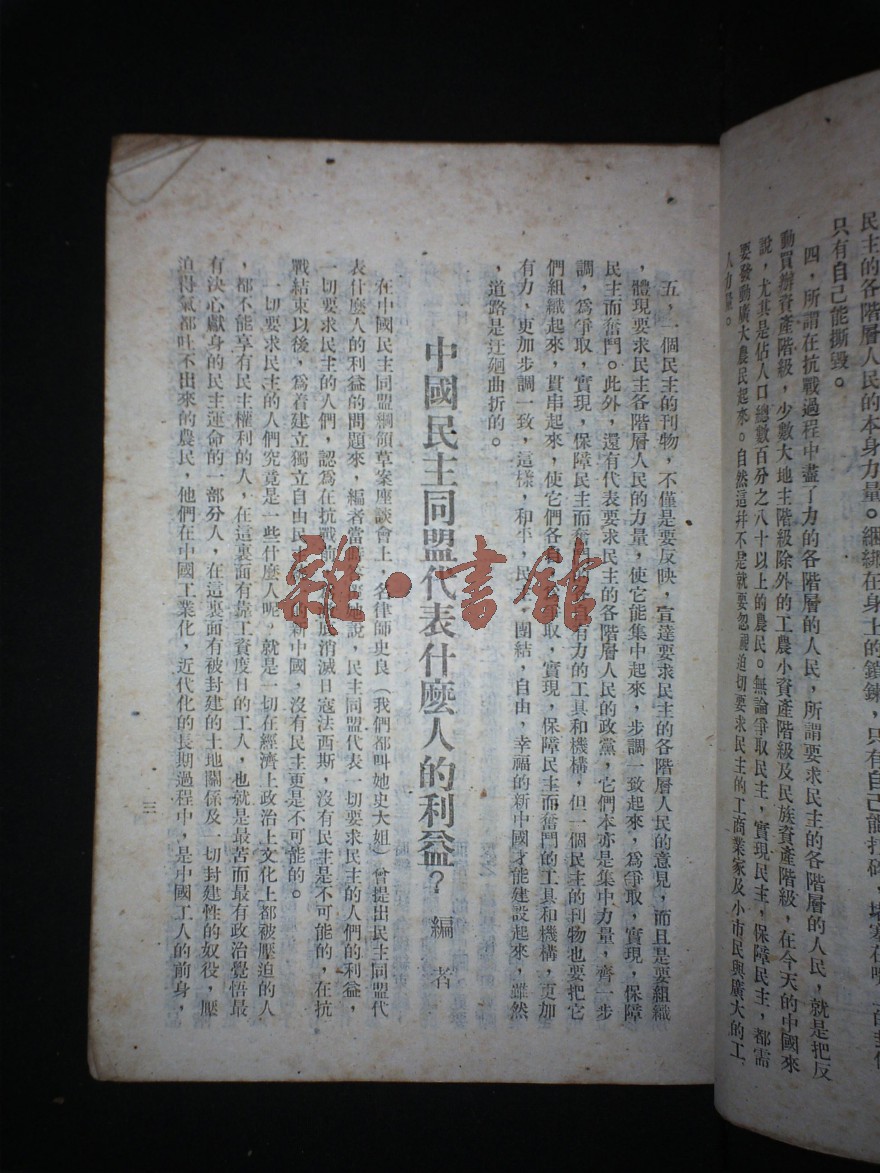 民主的各階層人民的本身力量。綑綁在身上的鎖鍊,只有自己能打碎,
只有自己能撕毀。
四,所謂在抗戰過程中盡了力的各階層的人民,所謂要求民主的各階層的人民,就是把反
動買辦資產階級,少數大地主階級除外的工農小資產階級及民族資產階級,在今天的中國來
說,尤其是佔人口總數百分之八十以上的農民。無論爭取民主,實現民主,保障民主,都需
要發動廣大農民起來。自然這幷不是就要忽視迫切要求民主的工商業家及小市民與廣大的工
人力量。
五,一個民主的刊物,不僅是要反映,宣達要求民主的各階層人民的意見,而且是要組織
,體現要求民主各階層人民的力量,使它能集中起來,步調一致起來,爲爭取,實現,保障
民主而奮鬥。此外,還有代表要求民主的各階層人民的政黨,它們本亦是集中力量,齊一步
調,爲爭取,實現,保障民主而奮 有力的工具和機構,但一個民主的刊物也要把它
們組織起來,貫串起來,使它們各自 爭取,實現,保障民主而奮鬥的工具和機構,更加
有力,更加步調一致,這樣,和平,民 ,團結,自由,幸福的新中國才能建設起來,雖然
,道路是迂廻曲折的。
中國民主同盟代表什麽人的利益?
編者
在中國民主同盟綱領草案座談會上,名律師史良(我們都叫她史大姐)曾提出民主同盟代
表什麽人的利益的問題來,編者當時 她說,民主同盟代表一切要求民主的人們的利益,
一切要求民主的人們,認爲在抗戰前 底消滅日寇法西斯,沒有民主是不可能的,在抗
戰結束以後,爲着建立獨立自由民 新中國,沒有民主更是不可能的。
一切要求民主的人們究竟是一些什麽人呢。就是一切在經濟上政治上文化上都被壓迫的人
,都不能享有民主權利的人,在這裏面有靠工資度日的工人,也就是最苦而最有政治覺悟最
有決心獻身的民主運命的一部分人,在這裏面有被封建的土地關係及一切封建性的奴役,壓
迫得氣都吐不出來的農民,他們在中國工業化,近代化的長期過程中,是中國工人的前身,
三
雜·書館